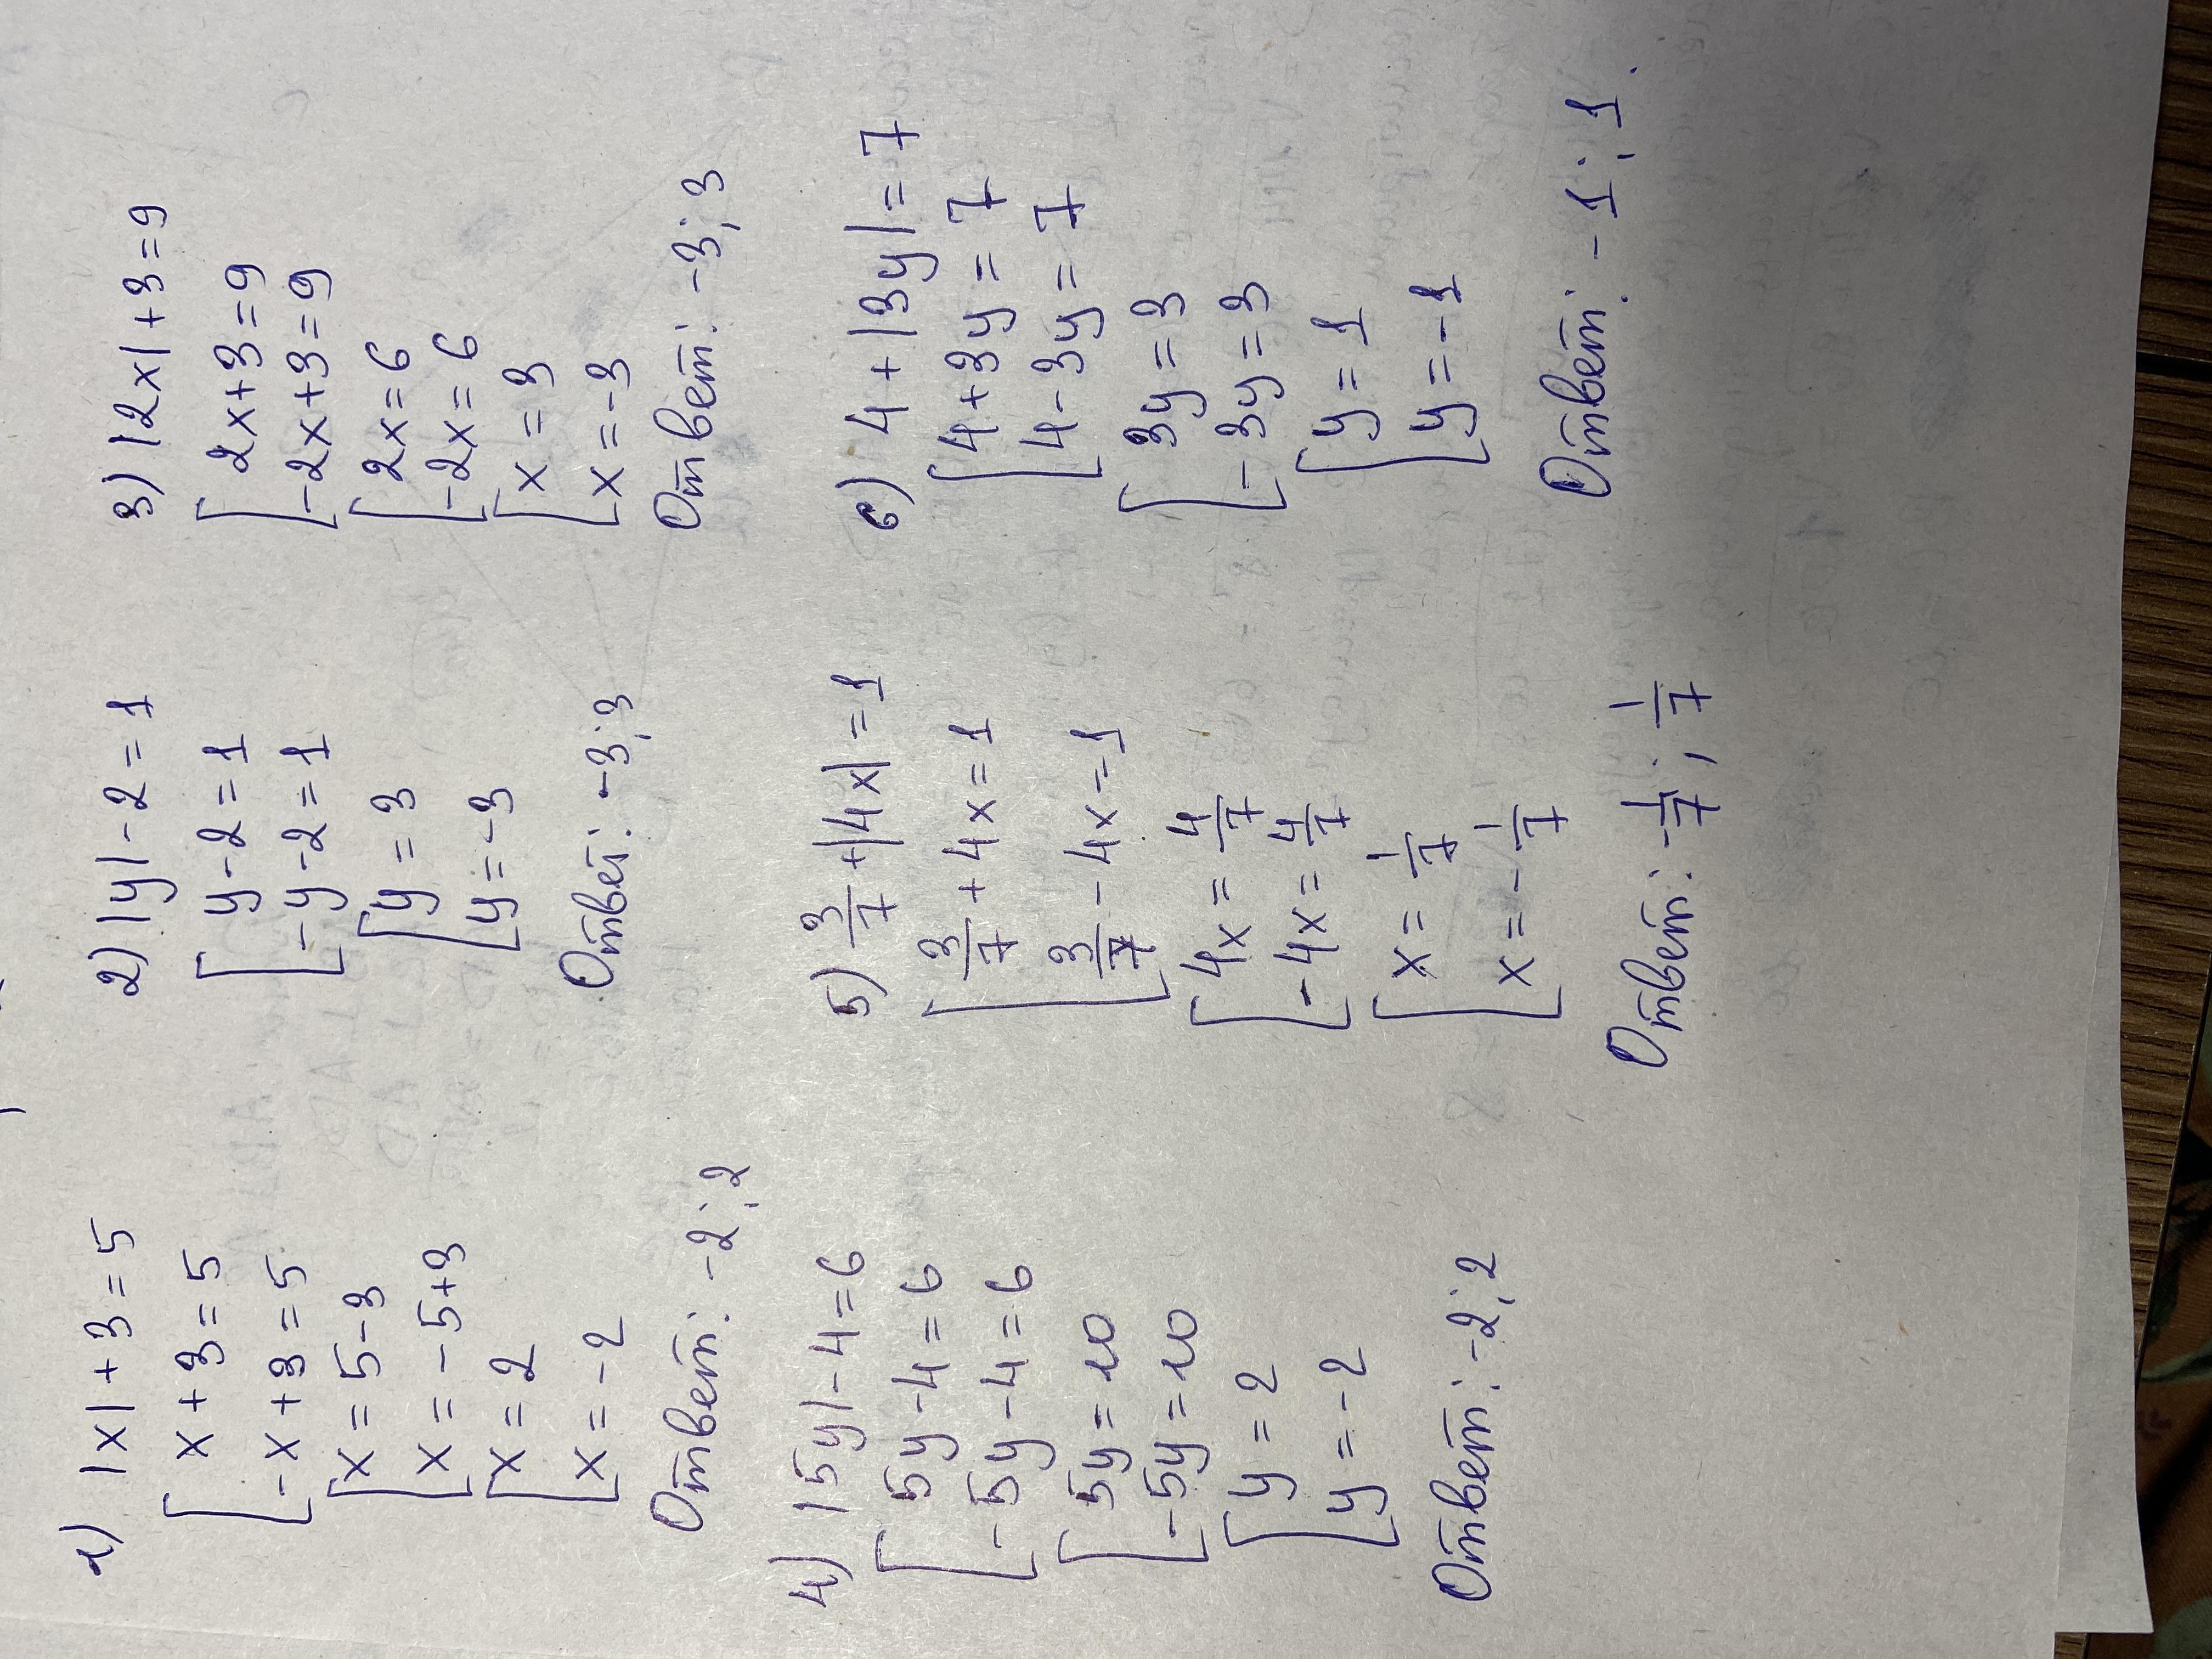 1) |x| + 3 = 5
x + 3 = 5
-x + 3 = 5
x = 5 - 3
x = -5 + 3
x = 2
x = -2
Ответ: -2; 2
2) |y| - 2 = 1
y - 2 = 1
-y - 2 = 1
y = 3
y = -3
Ответ: -3; 3
3) |2x| + 3 = 9
2x + 3 = 9
-2x + 3 = 9
2x = 6
-2x = 6
x = 3
x = -3
Ответ: -3; 3
4) |5y| - 4 = 6
5y - 4 = 6
-5y - 4 = 6
5y = 10
-5y = 10
y = 2
y = -2
Ответ: -2; 2
5) 3/7 + |4x| = 1
3/7 + 4x = 1
3/7 - 4x = 1
4x = 4/7
-4x = 4/7
x = 1/7
x = -1/7
Ответ: -1/7; 1/7
6) 4 + |3y| = 7
4 + 3y = 7
4 - 3y = 7
3y = 3
-3y = 3
y = 1
y = -1
Ответ: -1; 1.